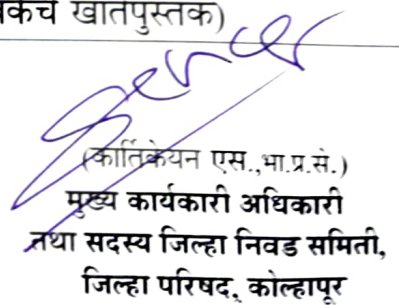 कचे खातेपुस्तक)
(कार्तिकेयन एस.,भा.प्र.से.)
मुख्य कार्यकारी अधिकारी
तथा सदस्य जिल्हा निवड समिती,
जिल्हा परिषद, कोल्हापूर